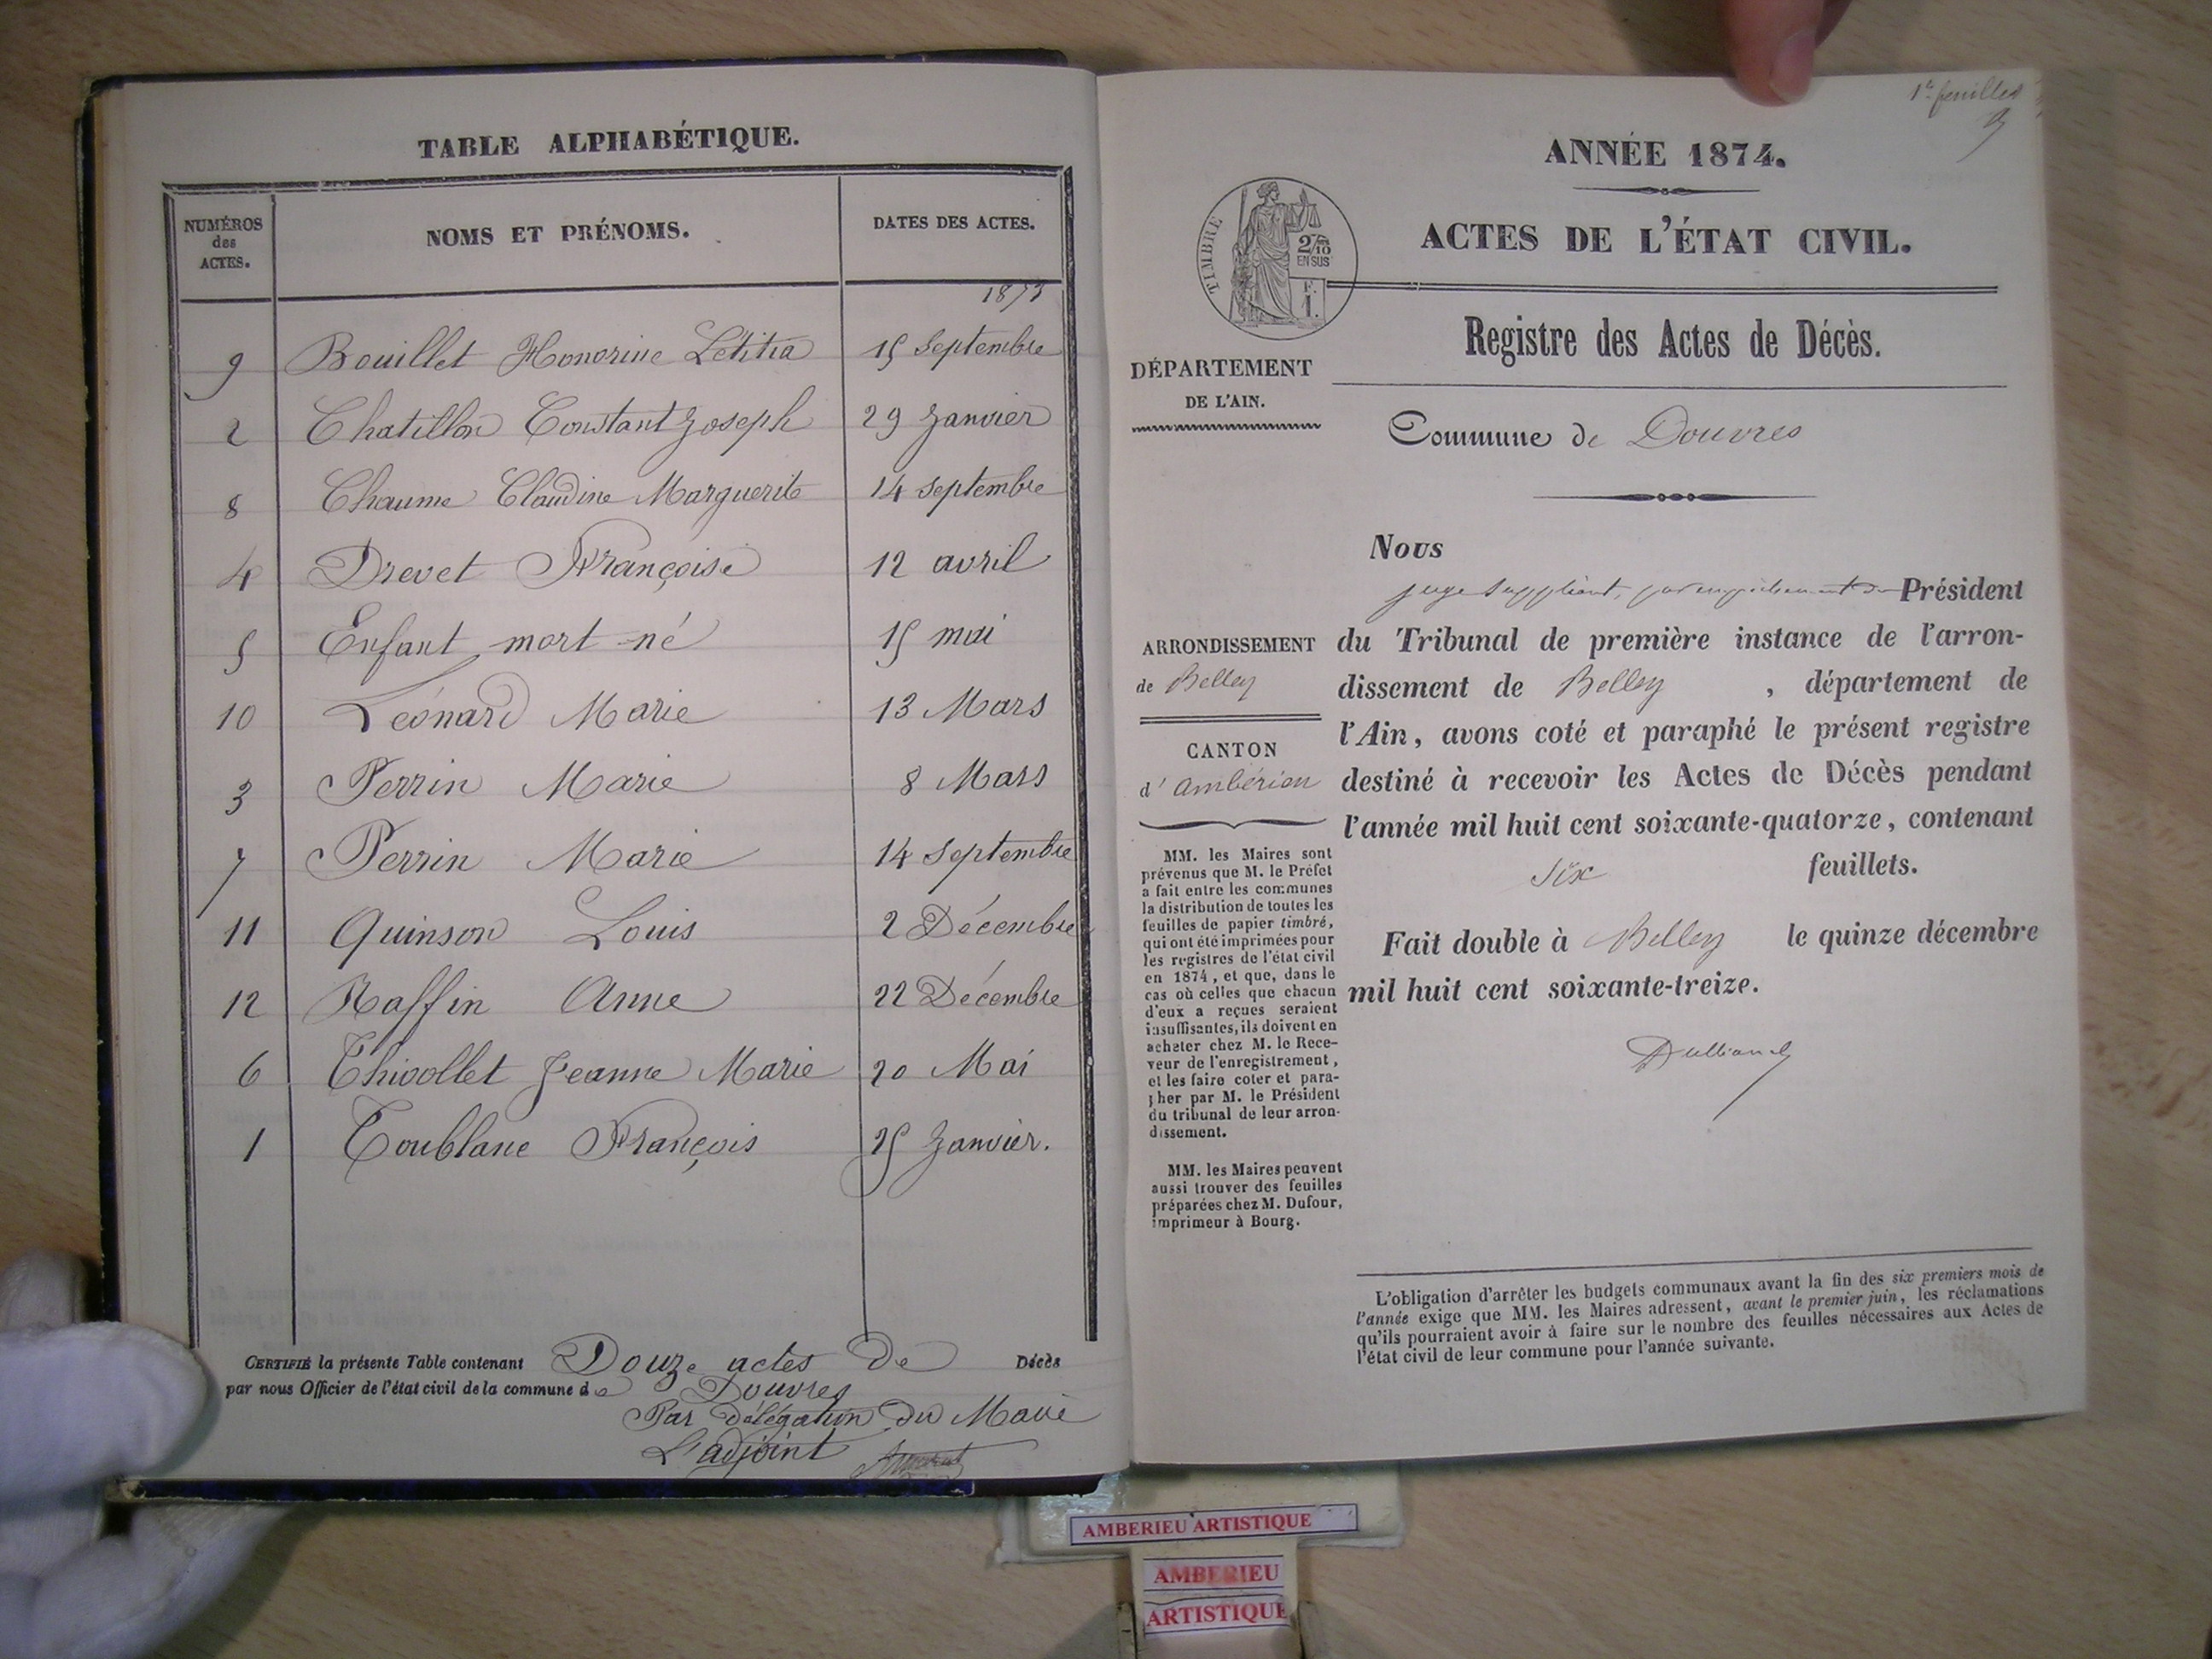 TABLE ALPHABÉTIQUE.
NUMÉROS des ACTES. NOMS ET PRÉNOMS. DATES DES ACTES.
1873
9 Bouillet Honorine Létitia 15 Septembre
2 Chatillon Constant Joseph 29 Janvier
8 Chaume Claudine Marguerite 14 Septembre
4 Drevet Françoise 12 avril
5 Enfant mort-né 15 mai
10 Léonard Marie 13 Mars
3 Perrin Marie 8 Mars
7 Perrin Marie 14 Septembre
11 Quinson Louis 2 Décembre
12 Raffin Anne 22 Décembre
6 Thivollet Jeanne Marie 20 Mai
1 Toublanc François 25 Janvier.
CERTIFIÉ la présente Table contenant Douze actes de Décès
par nous Officier de l'état civil de la commune de Douvres
Par délégation du Maire
L'adjoint
1er feuillet
ANNÉE 1874.
ACTES DE L'ÉTAT CIVIL.
TIMBRE
2/10
EN SUS
F.
1.
Registre des Actes de Décès.
DÉPARTEMENT
DE L'AIN.
Commune de Douvres
Nous
juge suppléant, par empêchement du Président
du Tribunal de première instance de l'arron-
dissement de Belley , département de
l'Ain, avons coté et paraphé le présent registre
destiné à recevoir les Actes de Décès pendant
l'année mil huit cent soixante-quatorze, contenant
six feuillets.
Fait double à Belley le quinze décembre
mil huit cent soixante-treize.
ARRONDISSEMENT
de Belley
CANTON
d'Ambérieu
MM. les Maires sont
prévenus que M. le Préfet
a fait entre les communes
la distribution de toutes les
feuilles de papier timbré,
qui ont été imprimées pour
les registres de l'état civil
en 1874, et que, dans le
cas où celles que chacun
d'eux a reçues seraient
insuffisantes, ils doivent en
acheter chez M. le Rece-
veur de l'enregistrement,
et les faire coter et para-
pher par M. le Président
du tribunal de leur arron-
dissement.
MM. les Maires peuvent
aussi trouver des feuilles
préparées chez M. Dufour,
imprimeur à Bourg.
L'obligation d'arrêter les budgets communaux avant la fin des six premiers mois de
l'année exige que MM. les Maires adressent, avant le premier juin, les réclamations
qu'ils pourraient avoir à faire sur le nombre des feuilles nécessaires aux Actes de
l'état civil de leur commune pour l'année suivante.
AMBERIEU ARTISTIQUE
AMBERIEU
ARTISTIQUE